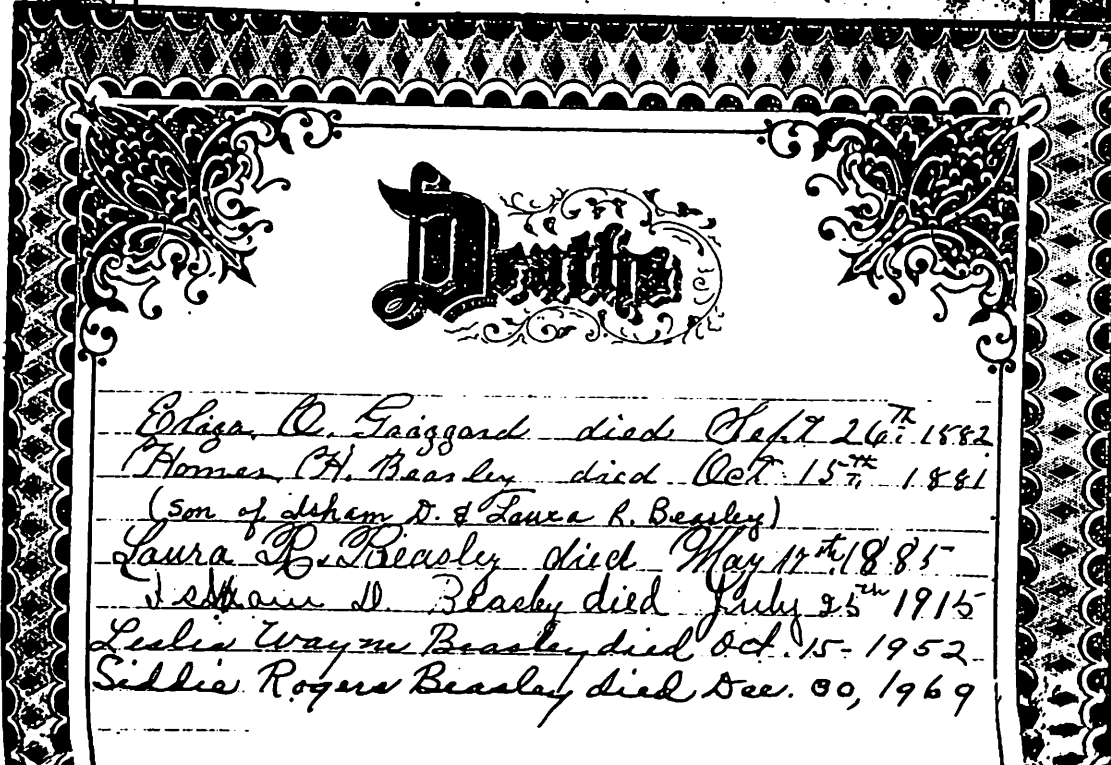 Deaths
Eliza. O. Gaazgard died Sept 26th 1882
Homer H. Beasley died Oct 15th 1881
(son of Isham D. & Laura R. Beasley)
Laura R. Beasley died May 17th, 1885
Isham D. Beasley died July 25th 1915
Leslie Wayne Beasley died Oct. 15 - 1952
Siddie Rogers Beasley died Dec. 30, 1969